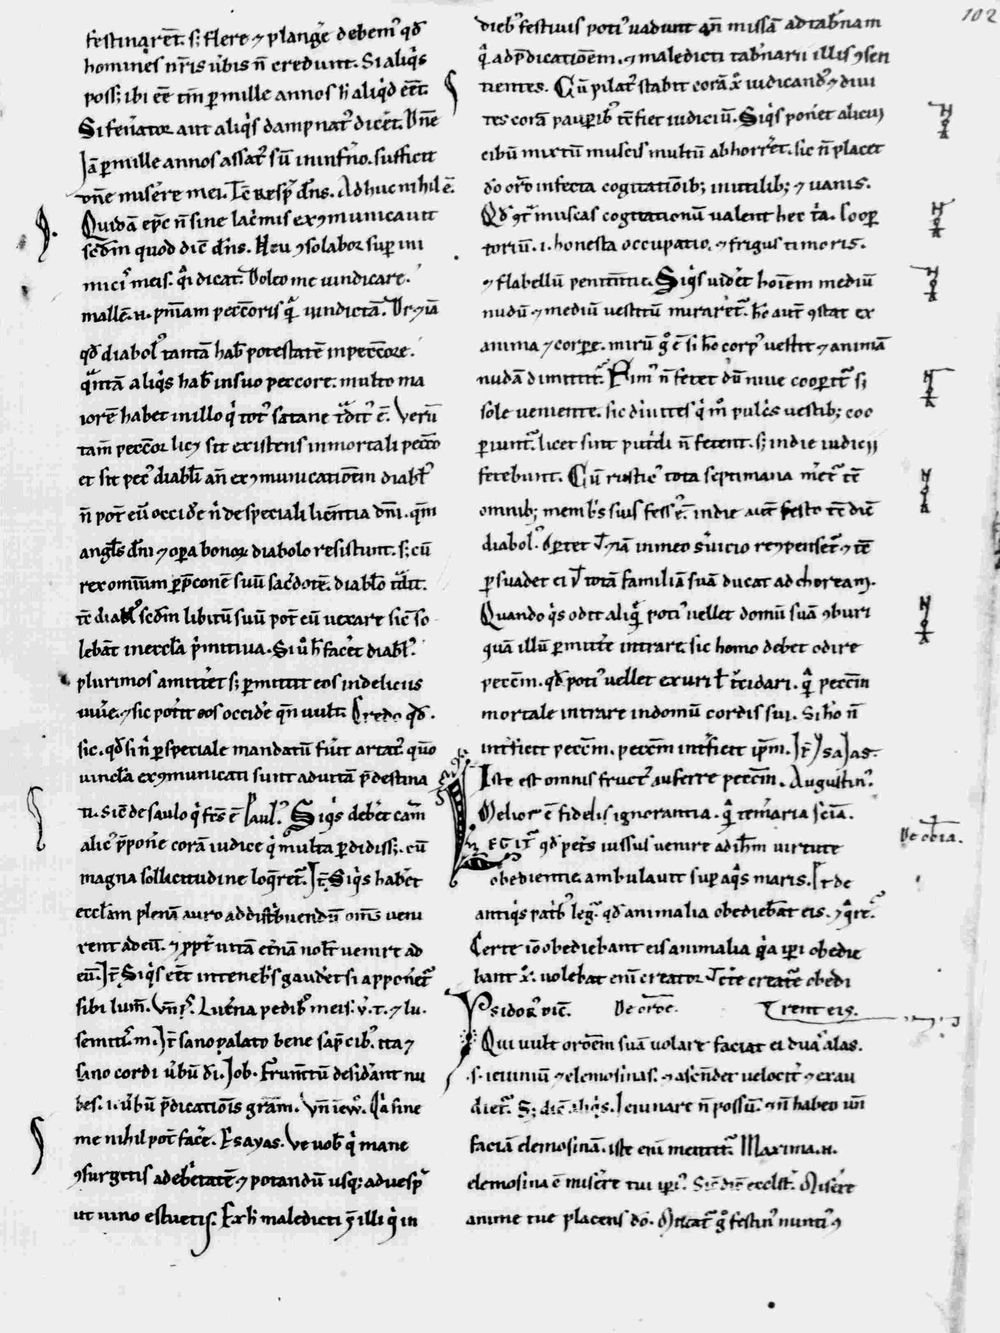 102
festinarēt. s; flere ⁊ plang̃e debem᷒ qđ
homines nr̃is ũbis n̄ credunt. Si aliq̃s
poss; ibi eē tm̄ p mille annos h̄ aliq̇d eēt.
Si fen̄ator aut aliq̇s dampnat᷒ dic̄et. Dn̄e
Jā p mille annos assat᷒ sū in inf̃no. sufficit
dn̄e misēre mei. Tc̄ resp̄ dn̄s. Adhuc nihil ē.
Quidā ep̄c n̄ sine lac̃mis exꝯmunicauit
sedm̄ quod dic̄ dn̄s. Heu ꝯsolabor sup ini
micis meis. q̇i dicat. Doleo me uindicare.
mallē .n. pn̄iam peccoris q̃ uindictā.
qđ diabol᷒ tantā hab̄ potestatē in peccōre.
q̃ntā aliq̇s hab̄ in suo peccore. multo ma
iorē habet in illo q̇ tot᷒ satane t̃dit᷒ ē. Verū
tam̄ peccōr lic; sit existens in mortali pecc̄o
et sit pec᷒ diabl̄i an̄ exꝯmunicationem diabl᷒
n̄ pot̄ eū occid̃e n̄ de speciali licentia dn̄i. qm̄
angl̄s dn̄i ⁊ opa bonoꝝ diabolo resistunt. s; cū
rex omnium p p̄conē suū sac̃dotē. diabl̄o t̃dit.
tc̄ diabl᷒ sedm̄ libitū suū pot̄ eū uexare sic̄ so
lebāt in eccl̄a p̃mitiua. Si ũ h̄ fac̃et diabl᷒.
plurimos amitt̃et s; pmittit eos in deliciis
uiũe. ⁊ sic pot̃it eos occid̃e qn̄ uult. Credo qđ.
sic. qđ si n̄ p speciale mandatū fũit artat᷒ quō
uincl̄a exꝯmunicati sunt ad uitā p̃destina
ti. sic̄ de saulo q̇ fc̄s ē Paul᷒. Siq̇s deb̃et cām̄
alic᷒ p̄pone corā iudice q̇ multa pdidiss;. cū
magna sollicitudine loq̃ret᷒. It̃. Siq̇s hab̃et
eccl̄am plenā auro ad distribuendū om̄s ueni
rent ad eū. ⁊ ppt̃ uitā et̃nā nolūt uenire ad
eū. It̃. Siq̇s eēt in teneb̃s gaud̃et si apponet᷒
sibi lum̄. Lucerna pedib᷒ meis. ũ. t. ⁊ lu.
semitis. m. It̃ sano palato bene sap̃ cib᷒. ita ⁊
sano cordi ũbū di. Job. Frum̄tū desid̃ant nu
bes. i. ũbū p̄dicatiōis grām. Q̃a sine
me nihil pot̄ fac̃e. Esayas. Ve uob᷒ q̇ mane
ꝯsurgitis ad eb̃etatē. ⁊ potandū usq; ad uesp᷒
ut uino estuetis. Ex h̄ maledicti s̄ illi q̇ in
dieb᷒ festiuis poti᷒ uadunt qn̄ missā ad tab̃nam
q̃ ad p̄dicatiōem. ⁊ maledicti tab̃narii illis ꝯsen
tientes. Cū pilat᷒ stabit corā x̄o iudicand᷒ ⁊ diui
tes corā paupib᷒ tc̄ fiet iudiciū. Siq̇s pon̄et alicui
cibū mixtū muscis multū abhorr̃et. sic n̄ placet
do or̃o infecta cogitationib; inutilib; ⁊ uanis.
Qđ ꝯt̃ muscas cogitationū ualent hec t̃ia. Coop
toriū .i. honesta occupatio. ⁊ frigus timoris.
⁊ flabellū penitentie. Siq̇s uid̃et hoīem mediū
nudū ⁊ mediū uestitū miraret᷒. hō aut̄ ꝯstat ex
anima ⁊ corpe. mirū g̊ ē si hō corp᷒ uestit ⁊ animā
nudā dimittit. Fim᷒ n̄ fetet dū niue coopit᷒ s;
sole ueniente. sic diuites q̇ m̊ pulc̃s uestib; coo
piunt᷒. licet sint putridi n̄ fetent. s; in die iudicii
fetebunt. Cū rustic᷒ tota septimana met᷒ tc̄
omnib; memb̃s suis fess᷒ ē. in die aut̄ festo tc̄ dic̄
diabol᷒. oportet ⁊iā in meo ẜuicio recꝯpenset᷒ ⁊ tc̄
psuadet ei ũ totā familiā suā ducat ad choream.
Quando q̇s odit aliq̃ poti᷒ uellet domū suā ꝯburi
quā illū pmitt̃e intrare. sic homo debet odire
peccm̄. qđ poti᷒ uellet exuri ł t̃cidari. q̃ peccm̄
mortale intrare in domū cordis sui. Si hō n̄
int̃ficit peccm̄. peccm̄ int̃ficit ip̄m. It̃ Ysaias.
Iste est omnis fruct᷒ auferre peccm̄. Augustin᷒.
Melior ē fidelis ignorantia. q̃ tem̃aria sc̄ia.
De obīa.
Legit᷒ qđ pet̃s iussus uenire ad ihm̄ uirtute
obedientie. ambulauit sup aq̃s maris. It̃ de
antiq̇s pat̃b᷒ leg᷒. qđ animalia obedieb̄at eis. ⁊ q̇re.
Certe iō obediebant eis animalia q̃a ip̄i obedie
bant x̄o. uolebat eni creator t̃c̄e creatē obedi
Ysidor᷒ dic̄. De or̃oe. rent eis.
Qui uult or̃oem suā uolare faciat ei duas alas.
.s. ieiuniū ⁊ elemosinas. ⁊ ascend̃et uelocit̃ ⁊ exau
diet᷒. S; dic̄ aliq̇s. Ieiunare n̄ possū. ⁊ n̄ habeo un̄
faciā elemosinā. iste eni mentit᷒. Maxima .n.
elemosina ē mis̃ere tui ip̄i᷒. Sic̄ dic̄ ecclēst. Mis̃ere
anime tue placens do. Mittat᷒ g̊ festin᷒ nunti᷒ ⁊